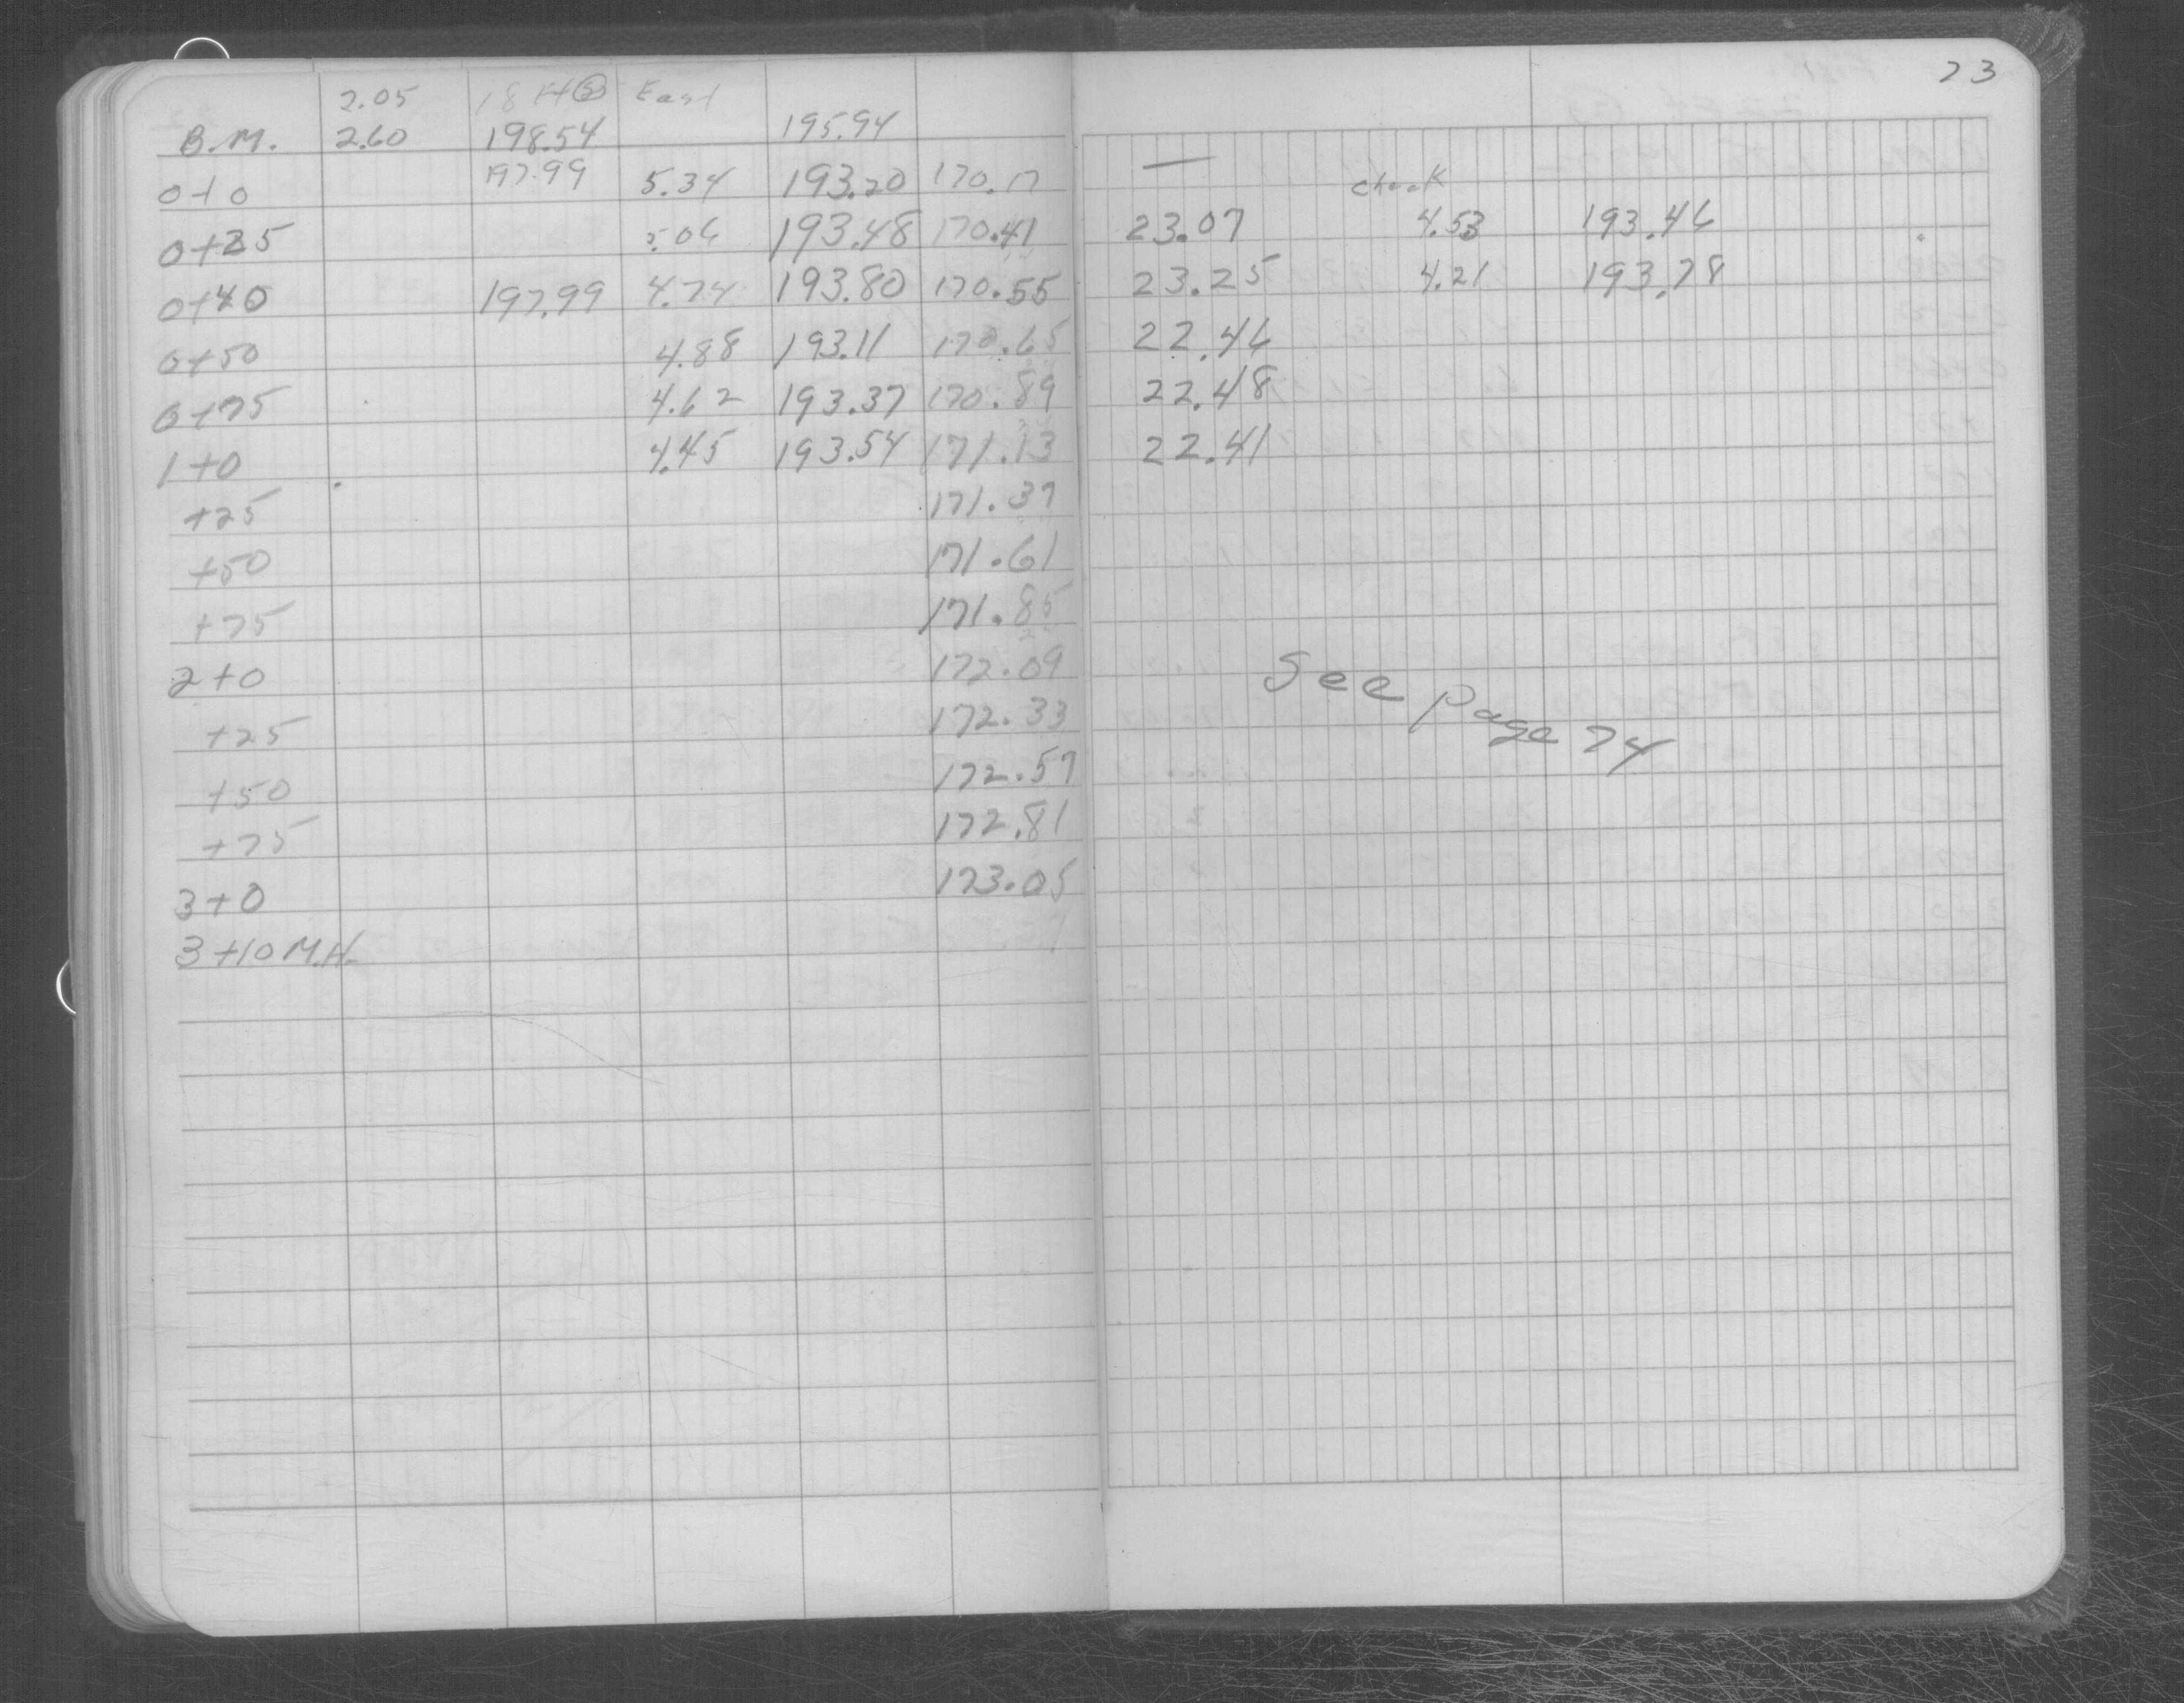 23
2.05 18 East
B.M. 2.60 198.54 195.94
0+0 197.99 5.34 193.20 170.17 —
check
0+25 5.06 193.48 170.41 23.07 4.53 193.46
0+40 197.99 4.74 193.80 170.55 23.25 4.21 193.78
0+50 4.88 193.11 170.65 22.46
0+75 4.62 193.37 170.89 22.48
1+0 4.45 193.54 171.13 22.41
+25 171.37
+50 171.61
+75 171.85
2+0 172.09
+25 172.33
+50 172.57
+75 172.81
3+0 173.05
3+10 M.H.
See page 24